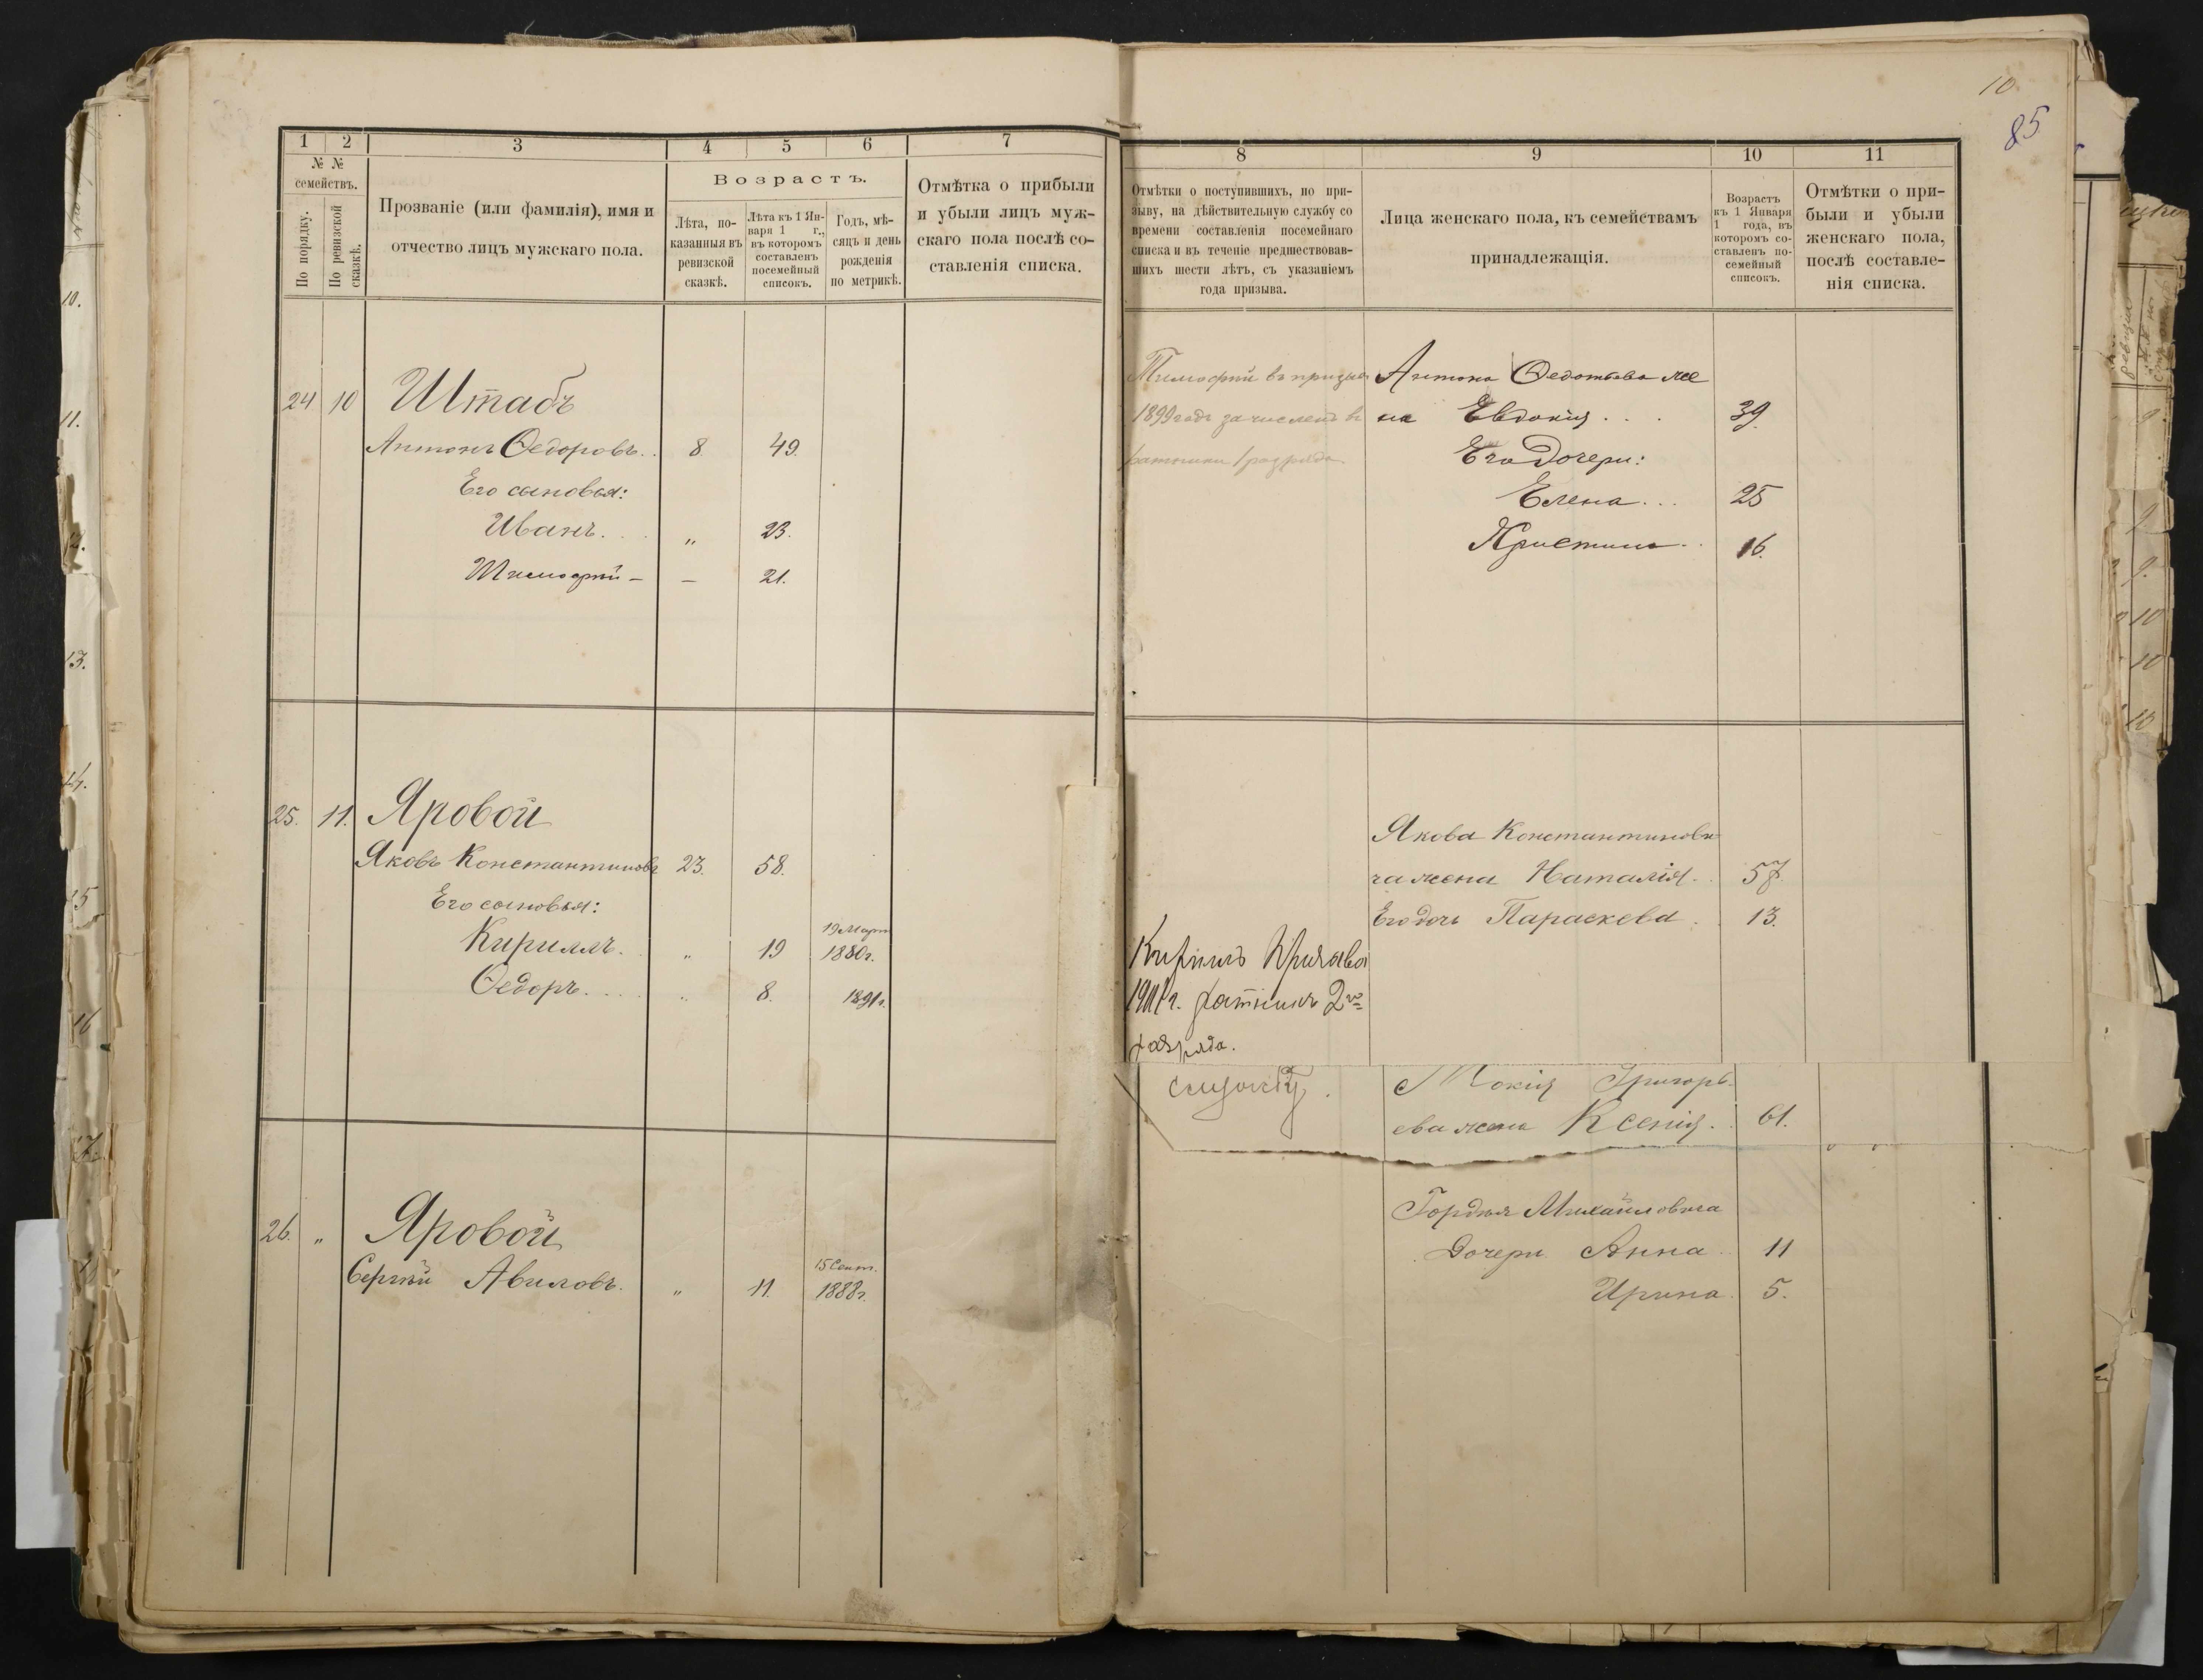 10
85
1 2 3 4 5 6 7
№ №
семействъ.
По порядку.
По ревизской
сказкѣ.
Прозваніе (или фамилія), имя и
отчество лицъ мужскаго пола.
Возрастъ.
Лѣта, по-
казанныя въ
ревизской
сказкѣ.
Лѣта къ 1 Ян-
варя 1 г.,
въ которомъ
составленъ
посемейный
списокъ.
Годъ, мѣ-
сяцъ и день
рожденія
по метрикѣ.
Отмѣтка о прибыли
и убыли лицъ муж-
скаго пола послѣ со-
ставленія списка.
24 10 Штабъ
Антонъ Ѳедоровъ.. 8. 49.
Его сыновья:
Иванъ. . . „ 23.
Тимофей – – 21.
25. 11. Яровой
Яковъ Константиновъ 23. 58.
Его сыновья:
19 Март
Кириллъ. „ 19 1880г.
Ѳедоръ. . . . „ 8. 1891г.
26. „ Яровой
15 Сент.
Сергѣй Авиловъ. „ 11. 1888г.
8 9 10 11
Отмѣтки о поступившихъ, по при-
зыву, на дѣйствительную службу со
времени составленія посемейнаго
списка и въ теченіе предшествовав-
шихъ шести лѣтъ, съ указаніемъ
года призыва.
Лица женскаго пола, къ семействамъ
принадлежащія.
Возрастъ
къ 1 Января
1 года, въ
которомъ со-
ставленъ по-
семейный
списокъ.
Отмѣтки о при-
были и убыли
женскаго пола,
послѣ составле-
нія списка.
Тимофей въ призыв
1899 годъ зачисленъ въ
ратники 1 разряда.
Антона Ѳедотьева же
на Евдокія . . . 39.
Его дочери:
Елена. . . 25
Христина . . 16.
Якова Константинови
ча жена Наталія. . 57.
Его дочь Параскева . 13.
Кирилъ Призыва
1901 г. ратникъ 2го
разряда.
Мокія Григорь-
ева жена Ксенія. . 61.
Гордѣя Михайловича
дочери Анна . 11
Ирина. 5.